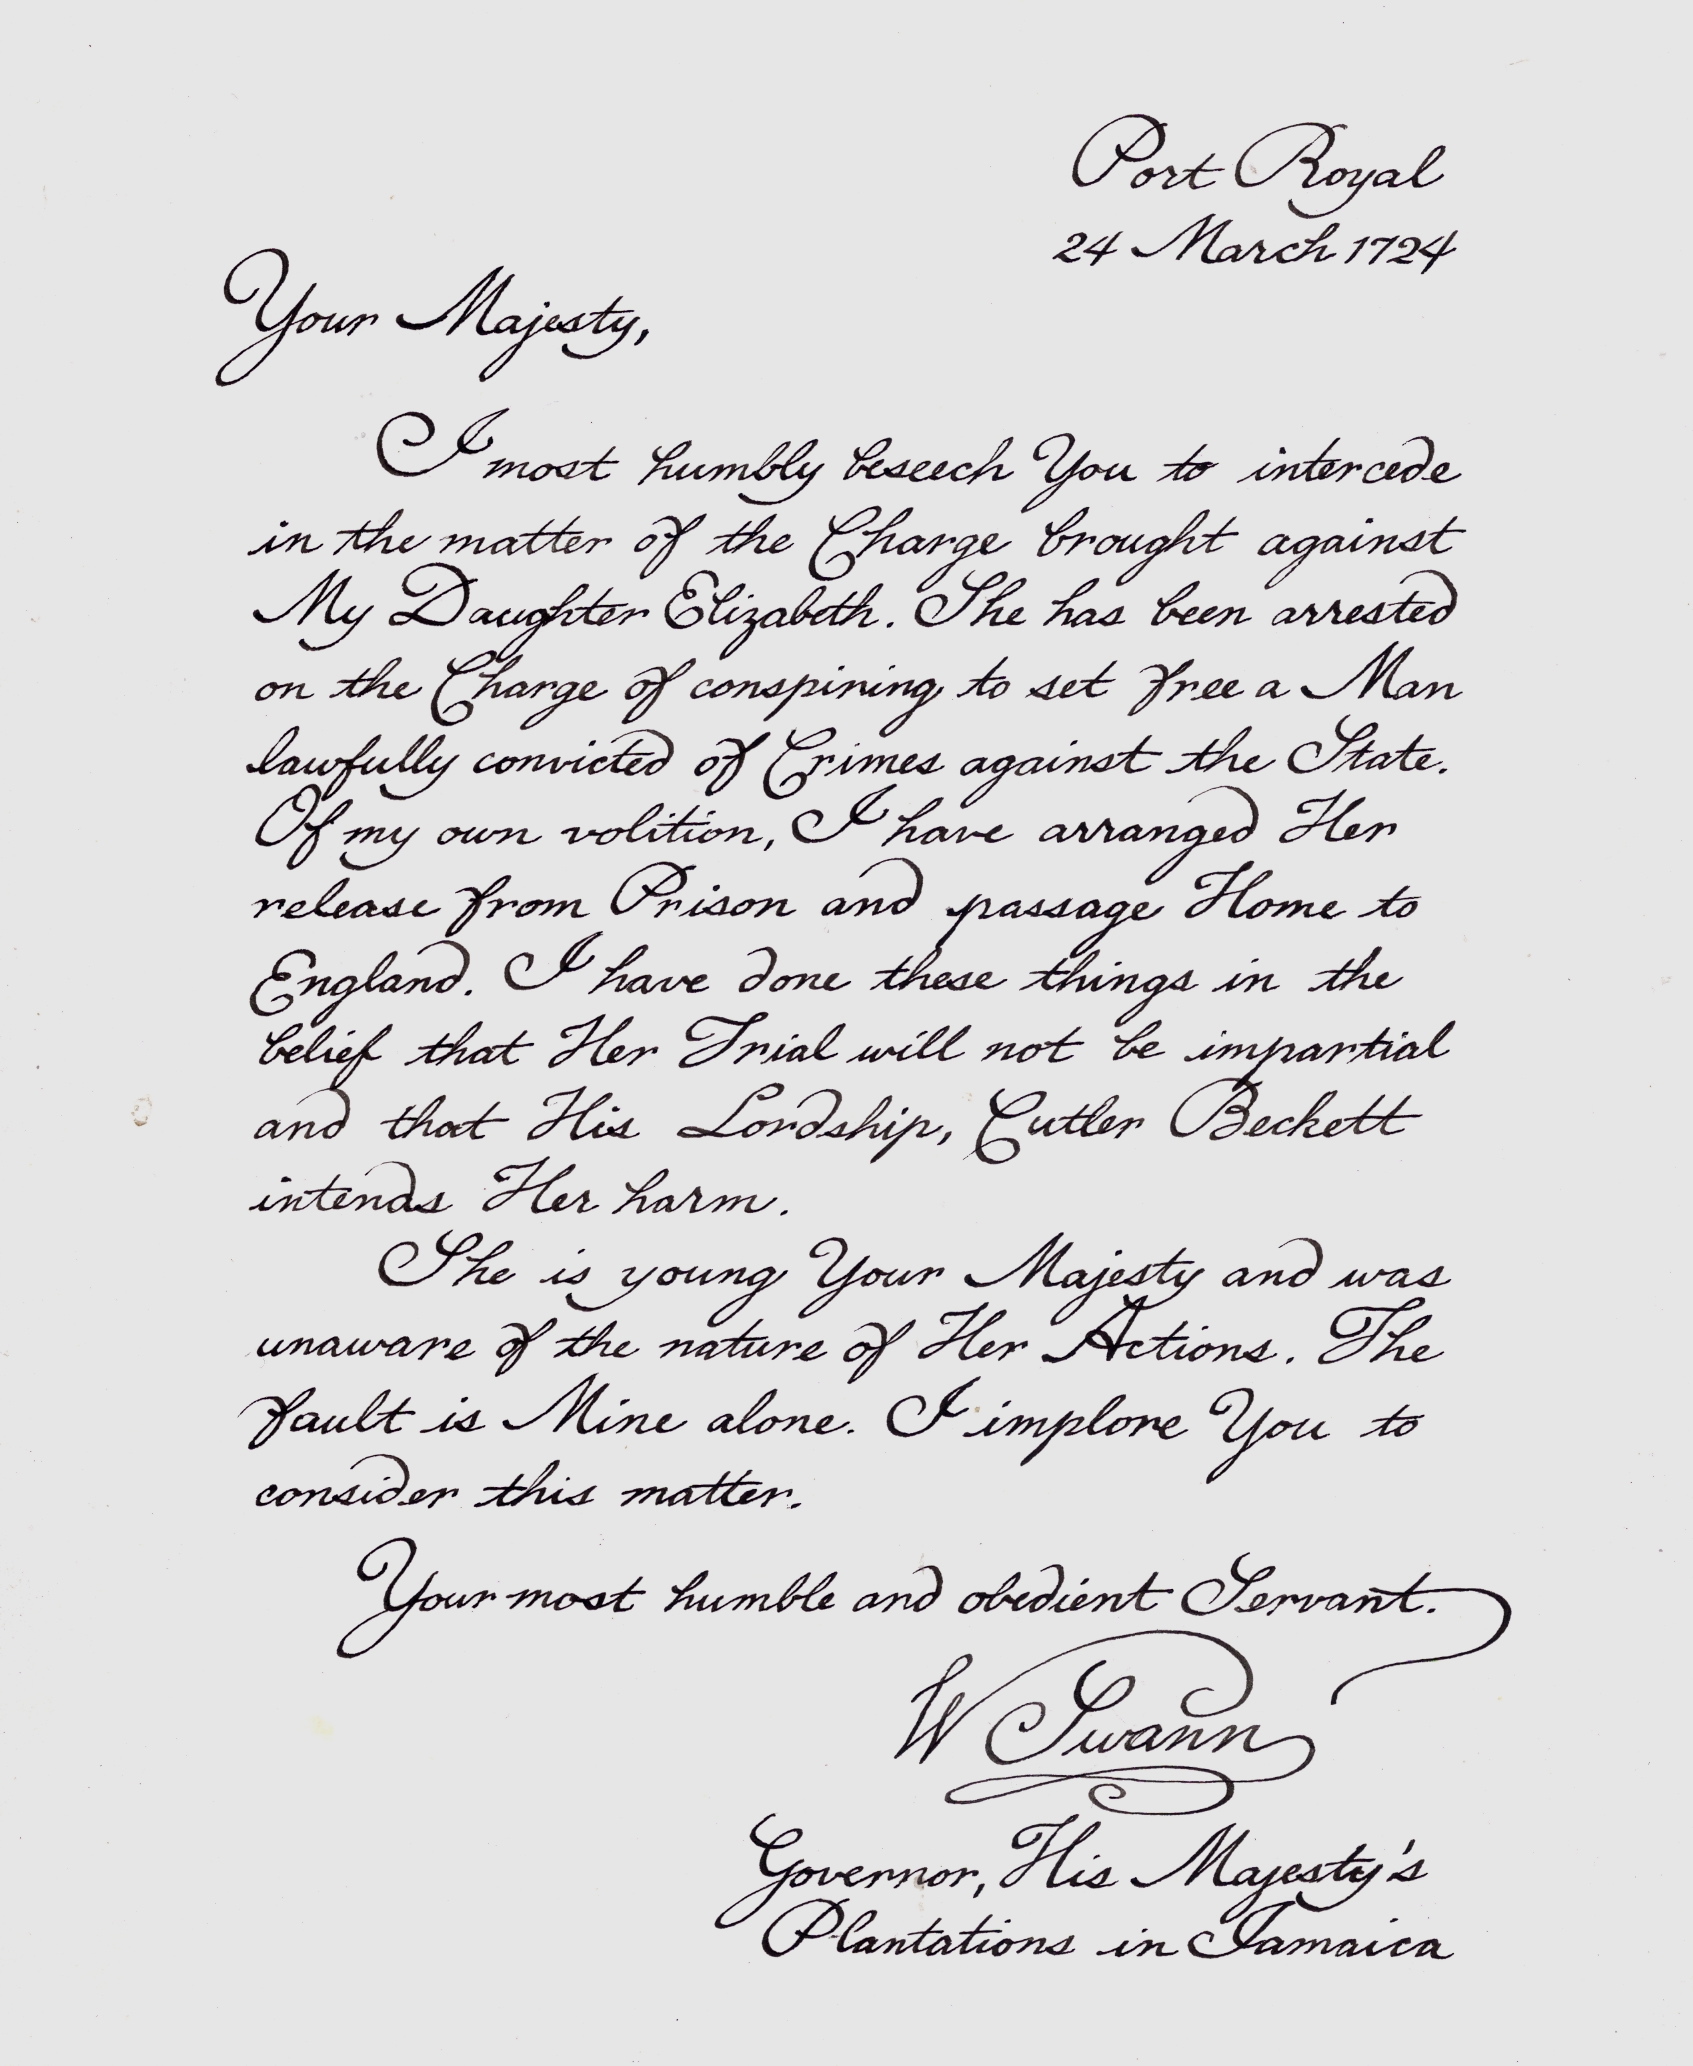 Port Royal
24 March 1724
Your Majesty,
I most humbly beseech You to intercede
in the matter of the Charge brought against
My Daughter Elizabeth. She has been arrested
on the Charge of conspiring to set free a Man
lawfully convicted of Crimes against the State.
Of my own volition, I have arranged Her
release from Prison and passage Home to
England. I have done these things in the
belief that Her Trial will not be impartial
and that His Lordship, Cutler Beckett
intends Her harm.
She is young Your Majesty and was
unaware of the nature of Her Actions. The
fault is Mine alone. I implore You to
consider this matter.
Your most humble and obedient Servant.
W Swann
Governor, His Majesty's
Plantations in Jamaica